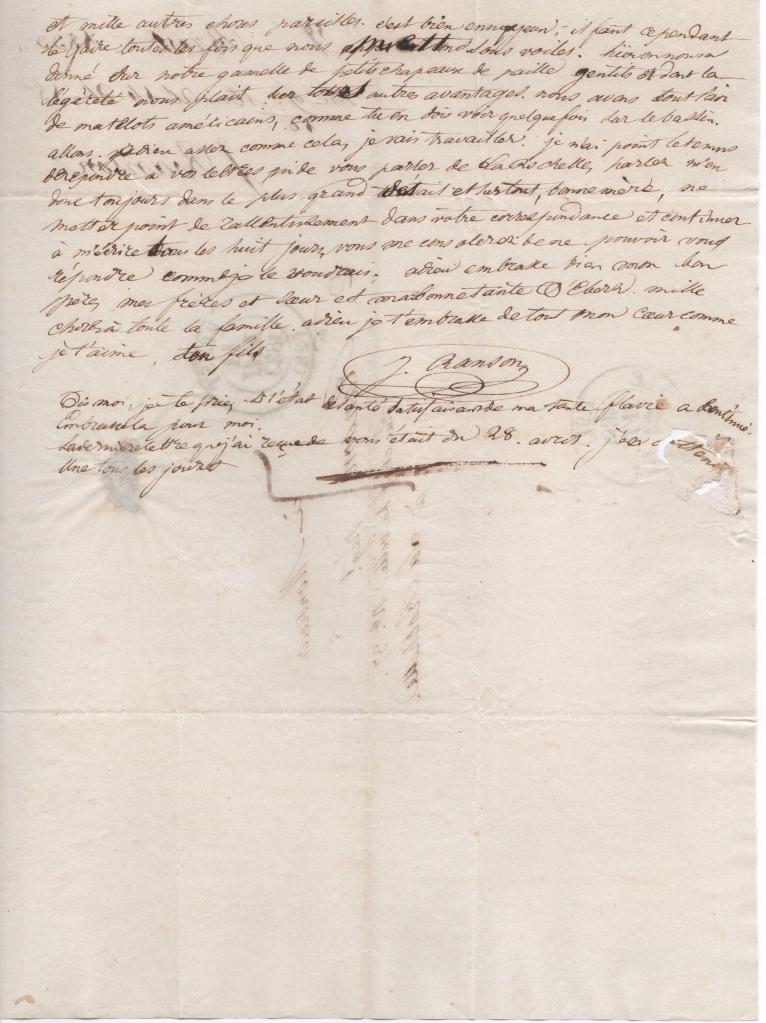 et mille autres choses pareilles. c'est bien ennuyeux; il faut cependant
le faire toutes les fois que nous sous voiles. hier on nous a
donné sur notre gamelle de petits chapeaux de paille gentils et dont la
légéreté nous plait sur tous autres avantages. nous avons tout l'air
de matelots américains, comme tu en dois voir quelquefois sur le bassin.
allons. adieu assez comme cela, je vais travailler. je n'ai point le tems
de répondre à vos lettres ni de vous parler de La Rochelle, parlez m'en
donc toujours dans le plus grand détail et surtout, bonne mère, ne
mettez point de rallentissement dans votre correspondance et continuez
à m'écrire tous les huit jours, vous me consolerez de ne pouvoir vous
répondre comme je le voudrais. adieu embrasse bien mon bon
père, mes frères et sœur et ma bonne tante mille
choses à toute la famille. adieu je t'embrasse de tout mon cœur comme
je t'aime, ton fils
J. Ranson
Dis moi, je te prie, si l'état de santé satisfaisant de ma tante Flavie a continué.
Embrasse la pour moi.
La dernière lettre que j'ai reçue de vous était du 28. avril. j'en attends
une tous les jours